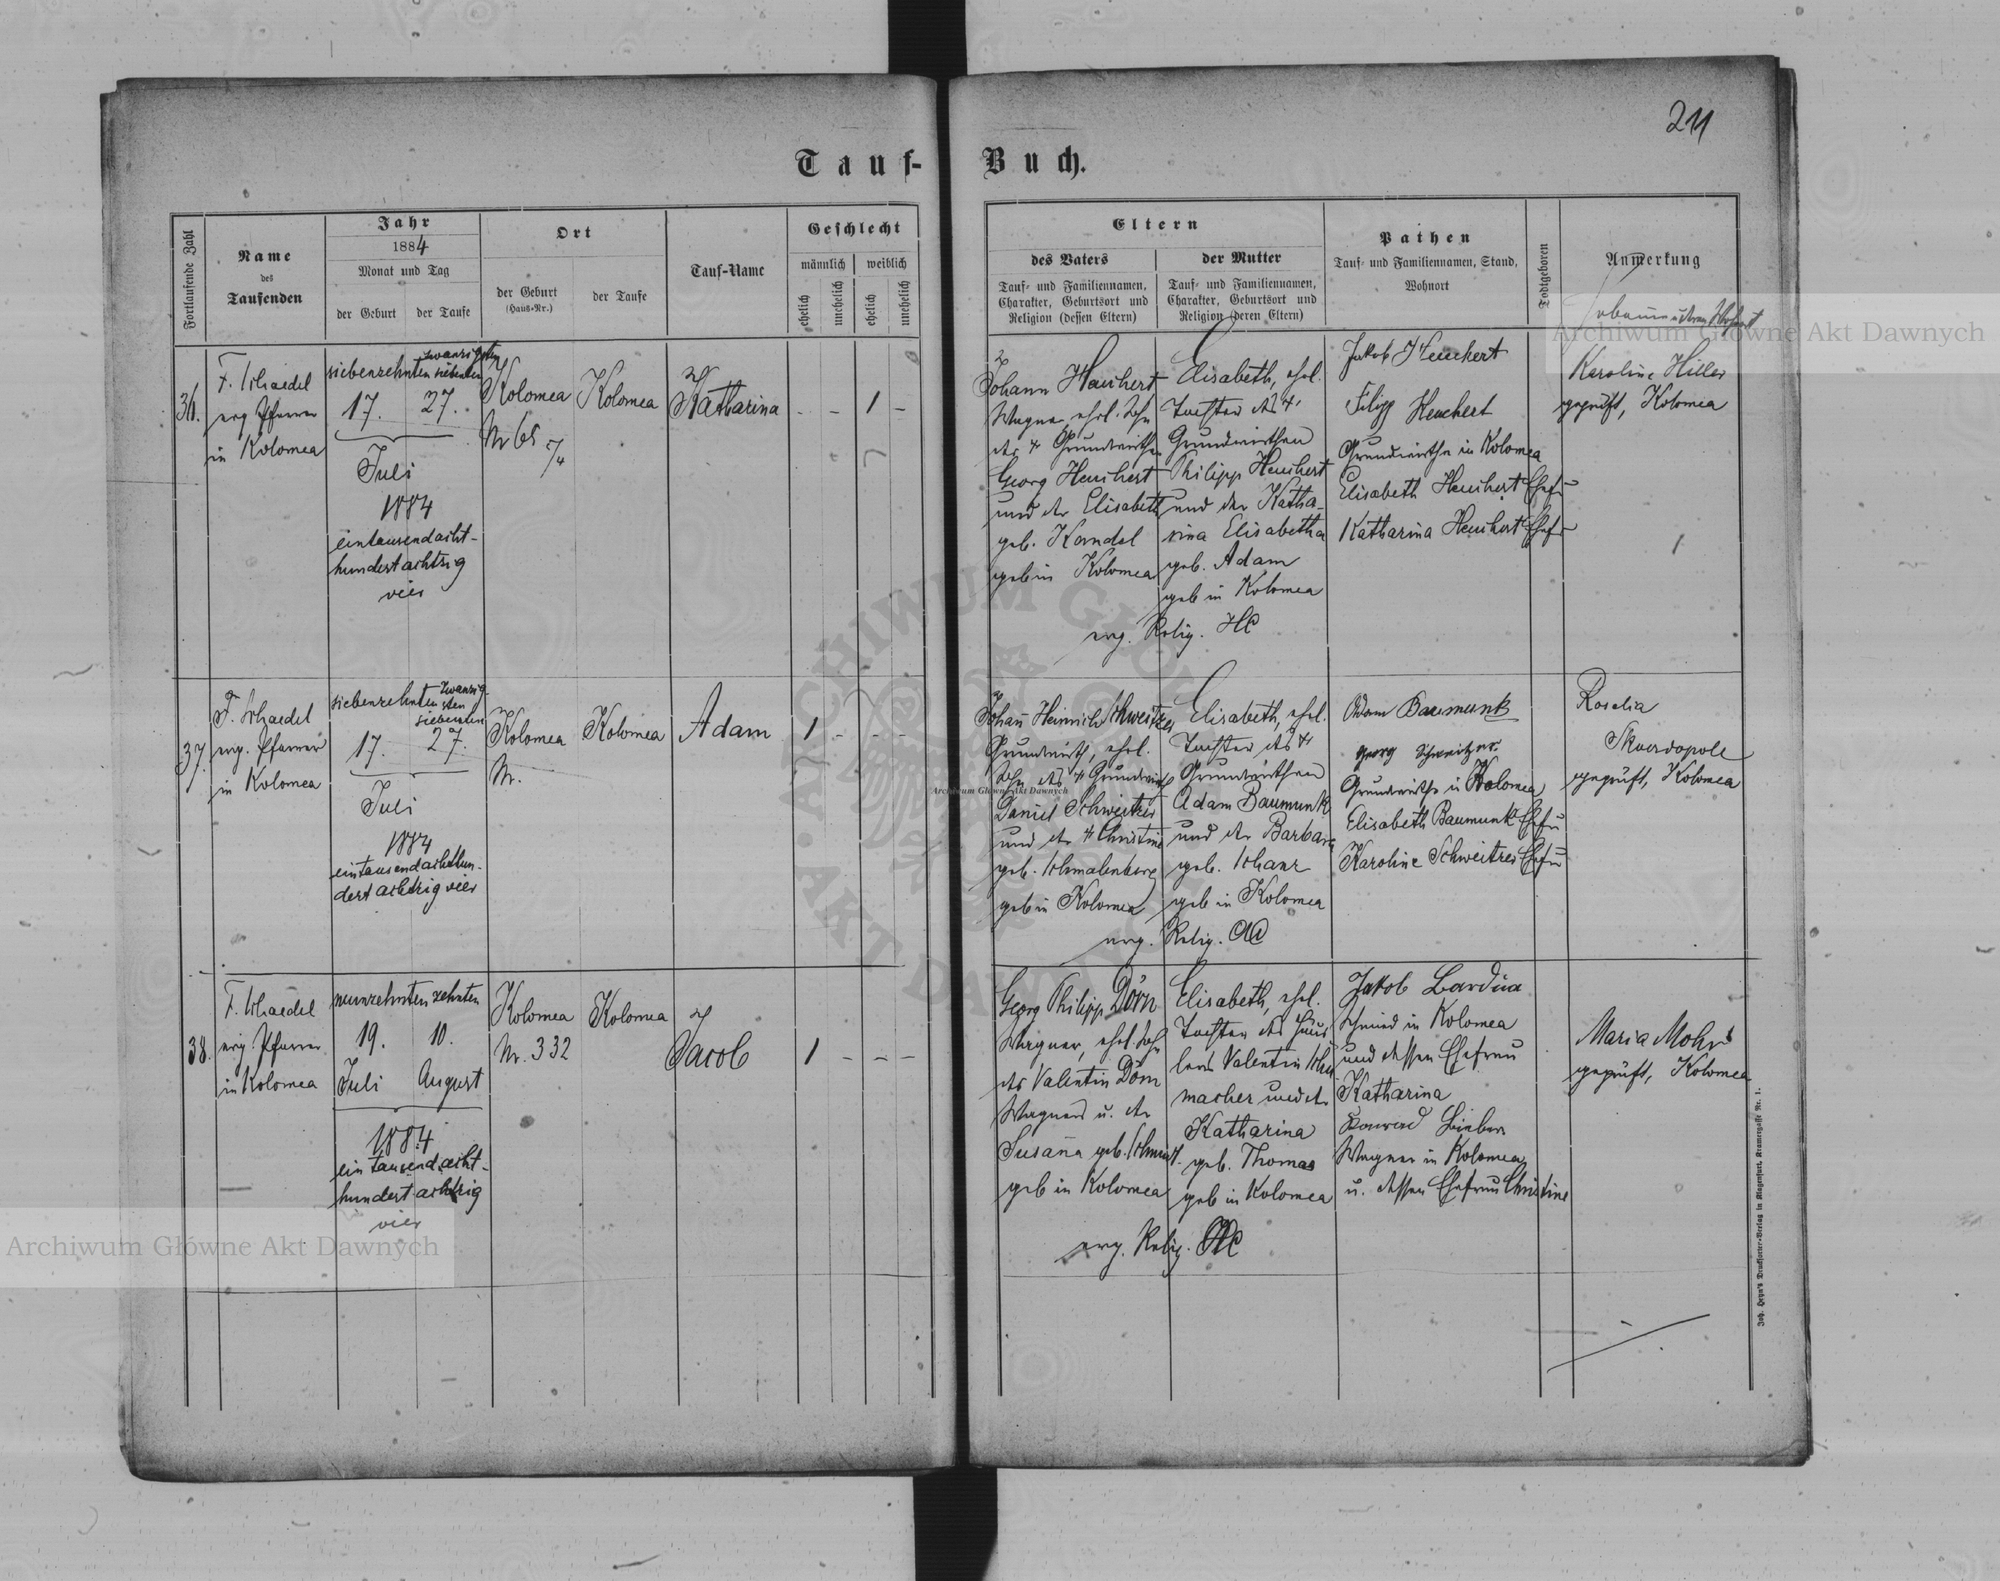 211
Tauf-
Buch.
Fortlaufende Zahl
Name
des
Taufenden
Jahr
1884
Monat und Tag
der Geburt
der Taufe
Ort
der Geburt
(Haus-Nr.)
der Taufe
Tauf-Name
Geschlecht
männlich
weiblich
ehelich
unehelich
ehelich
unehelich
Eltern
des Vaters
Tauf- und Familiennamen,
Charakter, Geburtsort und
Religion (dessen Eltern)
der Mutter
Tauf- und Familiennamen,
Charakter, Geburtsort und
Religion (deren Eltern)
Pathen
Tauf- und Familiennamen, Stand,
Wohnort
Todtgeboren
Anmerkung
36.
F. Schaedel
evg Pfarrer
in Kolomea
siebenzehnten
zwanzigsten
siebenten
17.
27.
Juli
1884
eintausendacht-
hundert achtzig
vier
Kolomea
Nr 65
Kolomea
Katharina
- - 1 -
Johann Heuchert
Wagner, ehel. Sohn
des † Grundwirthen
Georg Heuchert
und der Elisabeth
geb. Korndel
geb in Kolomea
Elisabeth, ehel.
Tochter des †
Grundwirthen
Philipp Heuchert
und der Katha-
rina Elisabetha
geb. Adam
geb in Kolomea
evg. Relig. HC
Jakob Heuchert
Filipp Heuchert
Grundwirthe in Kolomea
Elisabeth Heuchert Ehefr
Katharina Heuchert Ehefr
Hebamme
Karoline Hiller
geprüft, Kolomea
37.
F. Schaedel
evg. Pfarrer
in Kolomea
siebenzehnten
zwanzig-
sten
siebenten
17.
27.
Juli
1884
eintausendachthun-
dert achtzig vier
Kolomea
Nr.
Kolomea
Adam
1 - - -
Johañ Heinrich Schweitzer
Grundwirth, ehel.
Sohn des † Grundwirth
Daniel Schweitzer
und der † Christine
geb. Schmalenberg
geb in Kolomea
Elisabeth, ehel.
Tochter des †
Grundwirthen
Adam Baumunk
und der Barbara
geb. Schanz
geb in Kolomea
evg. Relig. AC
Adam Baumunk
georg Schweitzer
Grundwirthe in Kolomea
Elisabeth Baumunk Ehefr
Karoline Schweitzer Ehefr
Rosalia
Skwordopole
geprüft, Kolomea
38.
F. Schaedel
evg Pfarrer
in Kolomea
neunzehnten zehnten
19.
10.
Juli
August
1884
ein tausend acht-
hundert achtzig
vier
Kolomea
Nr. 332
Kolomea
Jacob
1 - - -
Georg Philipp Dörn
Wagner, ehel. Sohn
des Valentin Dörn
Wagners u. der
Susaña geb. Schmidt
geb in Kolomea
Elisabeth, ehel.
Tochter des Häus
lers Valentin Schu
macher und der
Katharina
geb. Thomas
geb in Kolomea
evg. Relig. HC
Jakob Bardua
Schmied in Kolomea
und dessen Ehefrau
Katharina
Konrad Bieber
Wagner in Kolomea
u. dessen Ehefrau Christine
Maria Mohr
geprüft, Kolomea
Joh. Heyn's Drucksorten-Verlag in Klagenfurt, Kramergasse Nr. 1.
Archiwum Główne Akt Dawnych
Archiwum Główne Akt Dawnych
Archiwum Główne Akt Dawnych